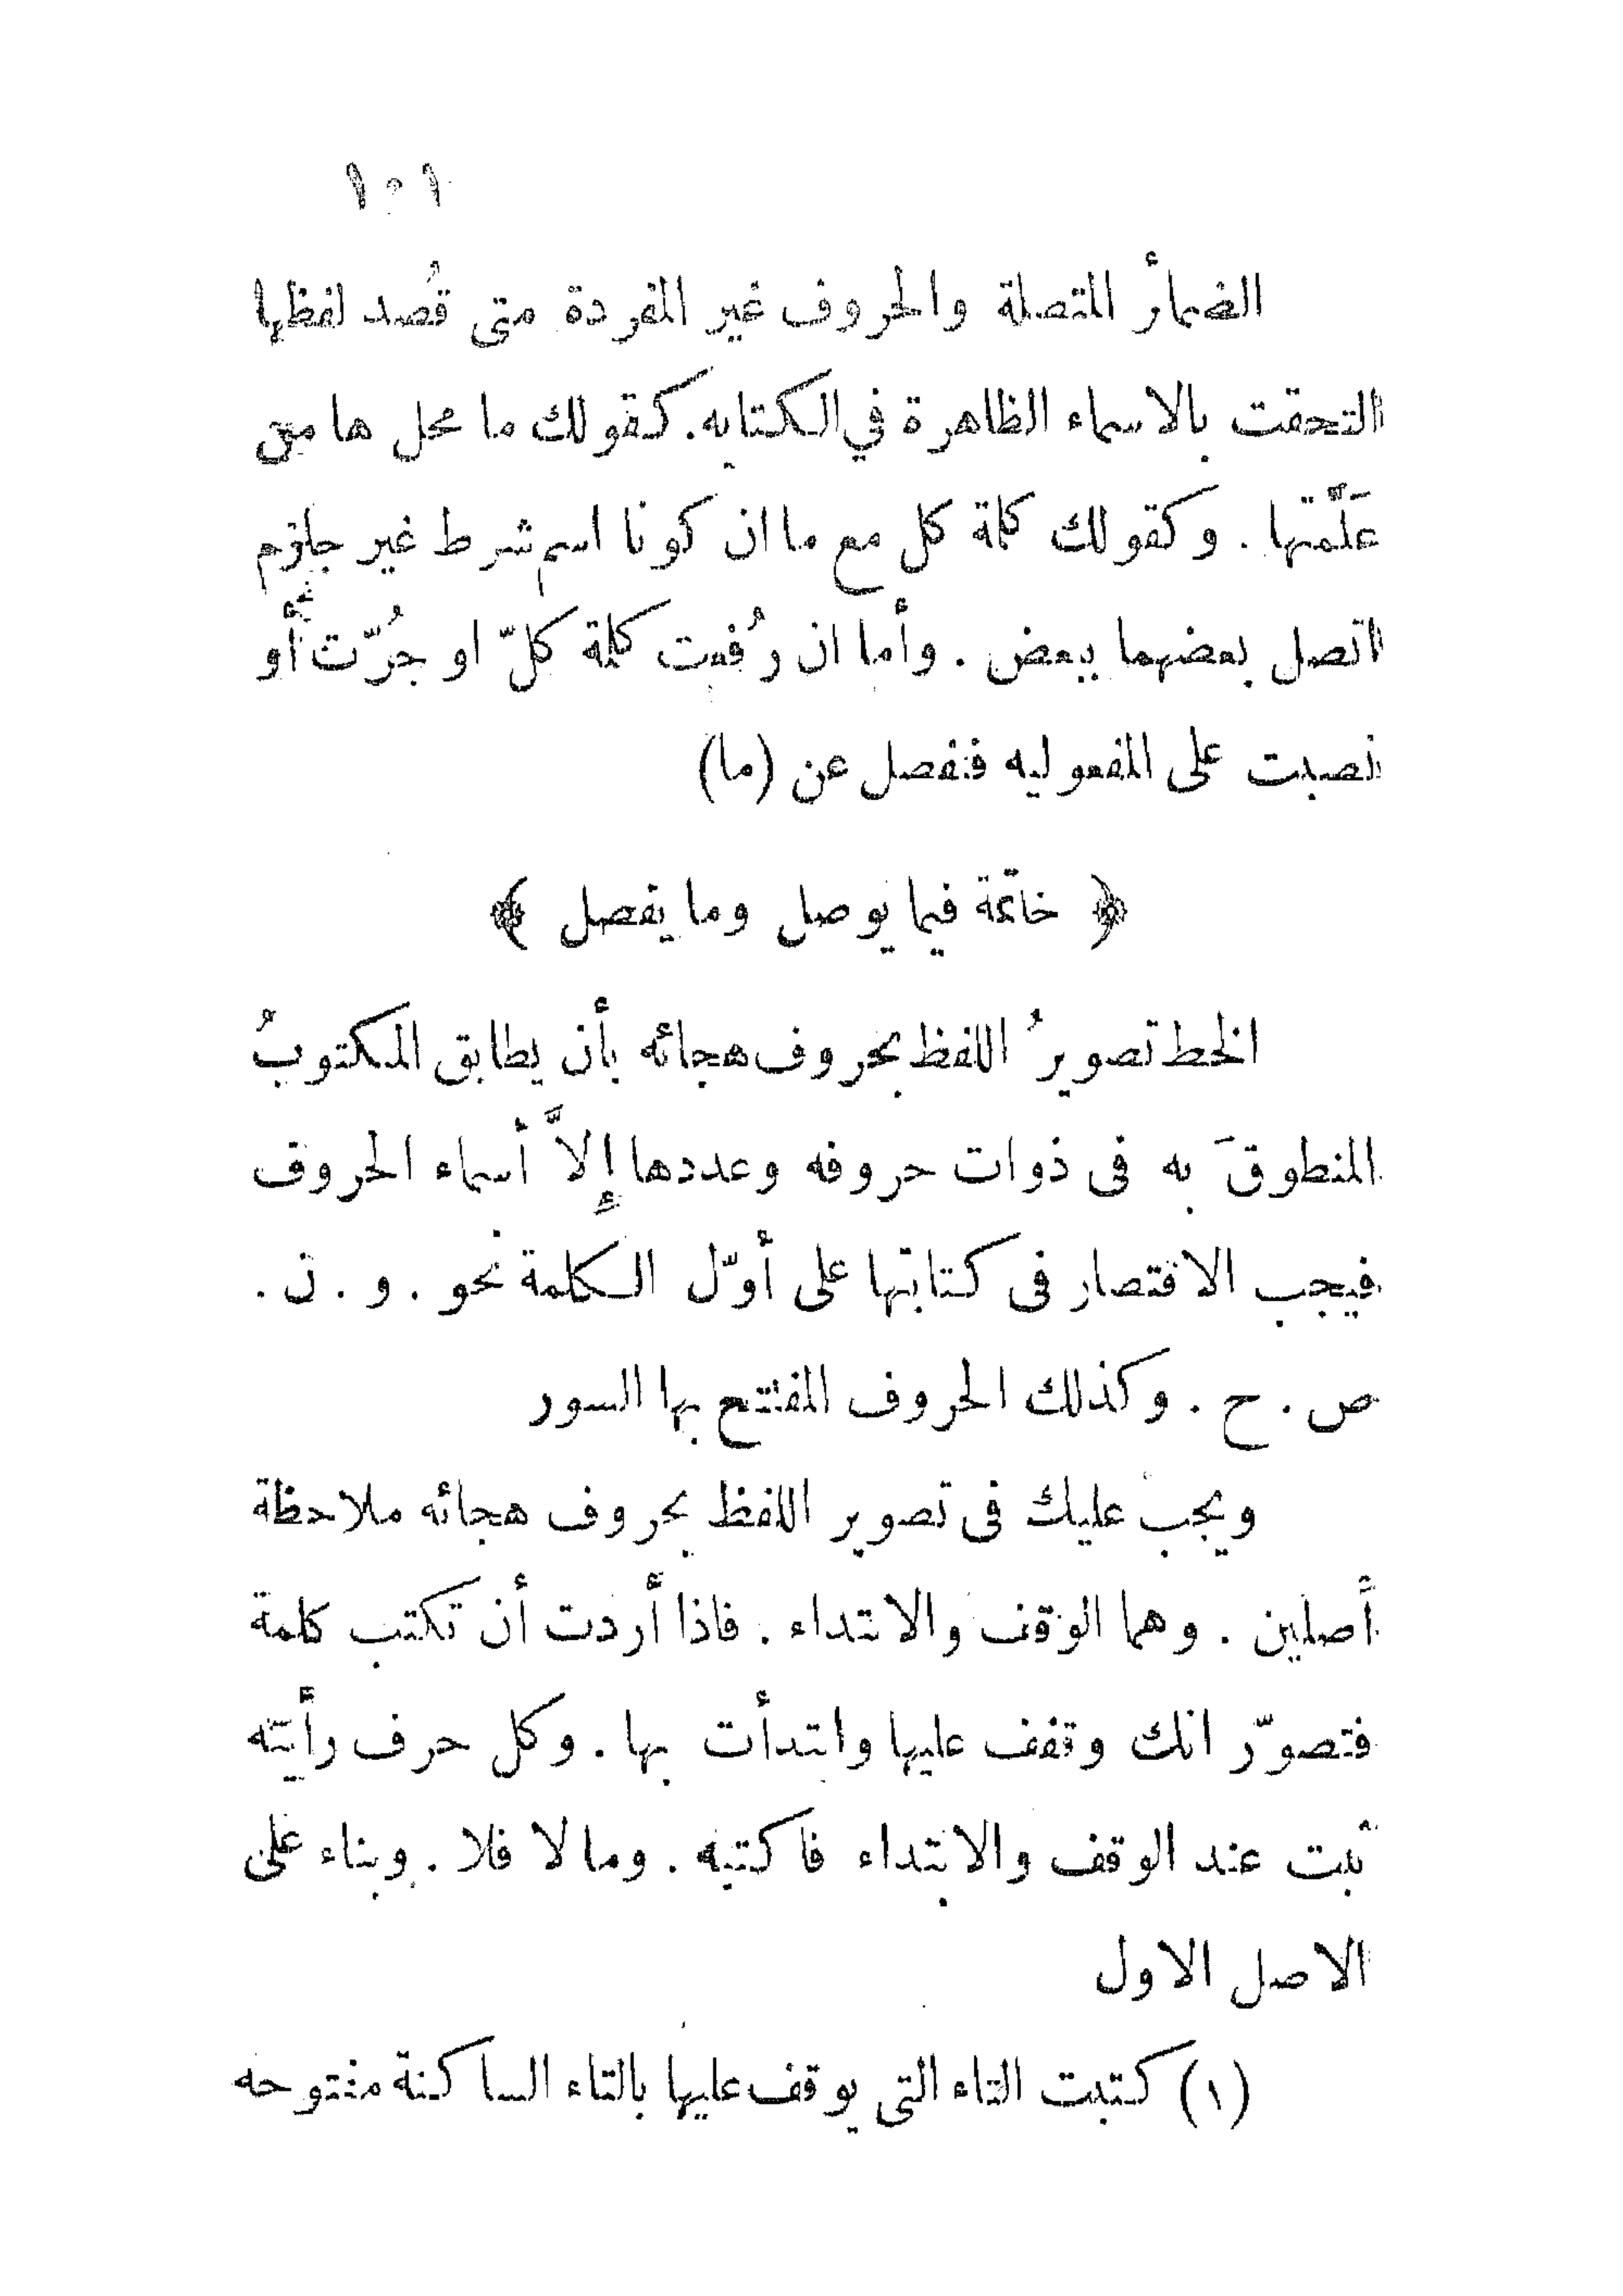 ١٥١
الضمائر المتصلة والحروف غير المفردة متى قُصد لفظها
التحقت بالاسماء الظاهرة في الكتابه. كقولك ما محل ها من
عَلَّمتها . وكقولك كلمة كل مع ما ان كونا اسم شرط غير جازم
اتصل بعضهما ببعض . وأما ان رُفعت كلمة كلّ او جُرّت أو
نصبت على المفعوليه فتفصل عن (ما)
﴿ خاتمة فيما يوصل وما يفصل ﴾
الخط تصويرُ اللفظ بحروف هجائه بأن يطابق المكتوبُ
المنطوقَ به فى ذوات حروفه وعددها إلاَّ أسماء الحروف
فيجب الاقتصار فى كتابتها على أوّل الكلمة نحو . و . ن .
ص . ح . وكذلك الحروف المفتتح بها السور
ويجب عليك فى تصوير اللفظ بحروف هجائه ملاحظة
أصلين . وهما الوقف والابتداء . فاذا أردت أن تكتب كلمة
فتصوّر انك وقفت عليها وابتدأت بها . وكل حرف رأيته
ثبت عند الوقف والابتداء فاكتبه . وما لا فلا . وبناء على
الاصل الاول
(١) كتبت التاء التى يوقف عليها بالتاء الساكنة مفتوحه